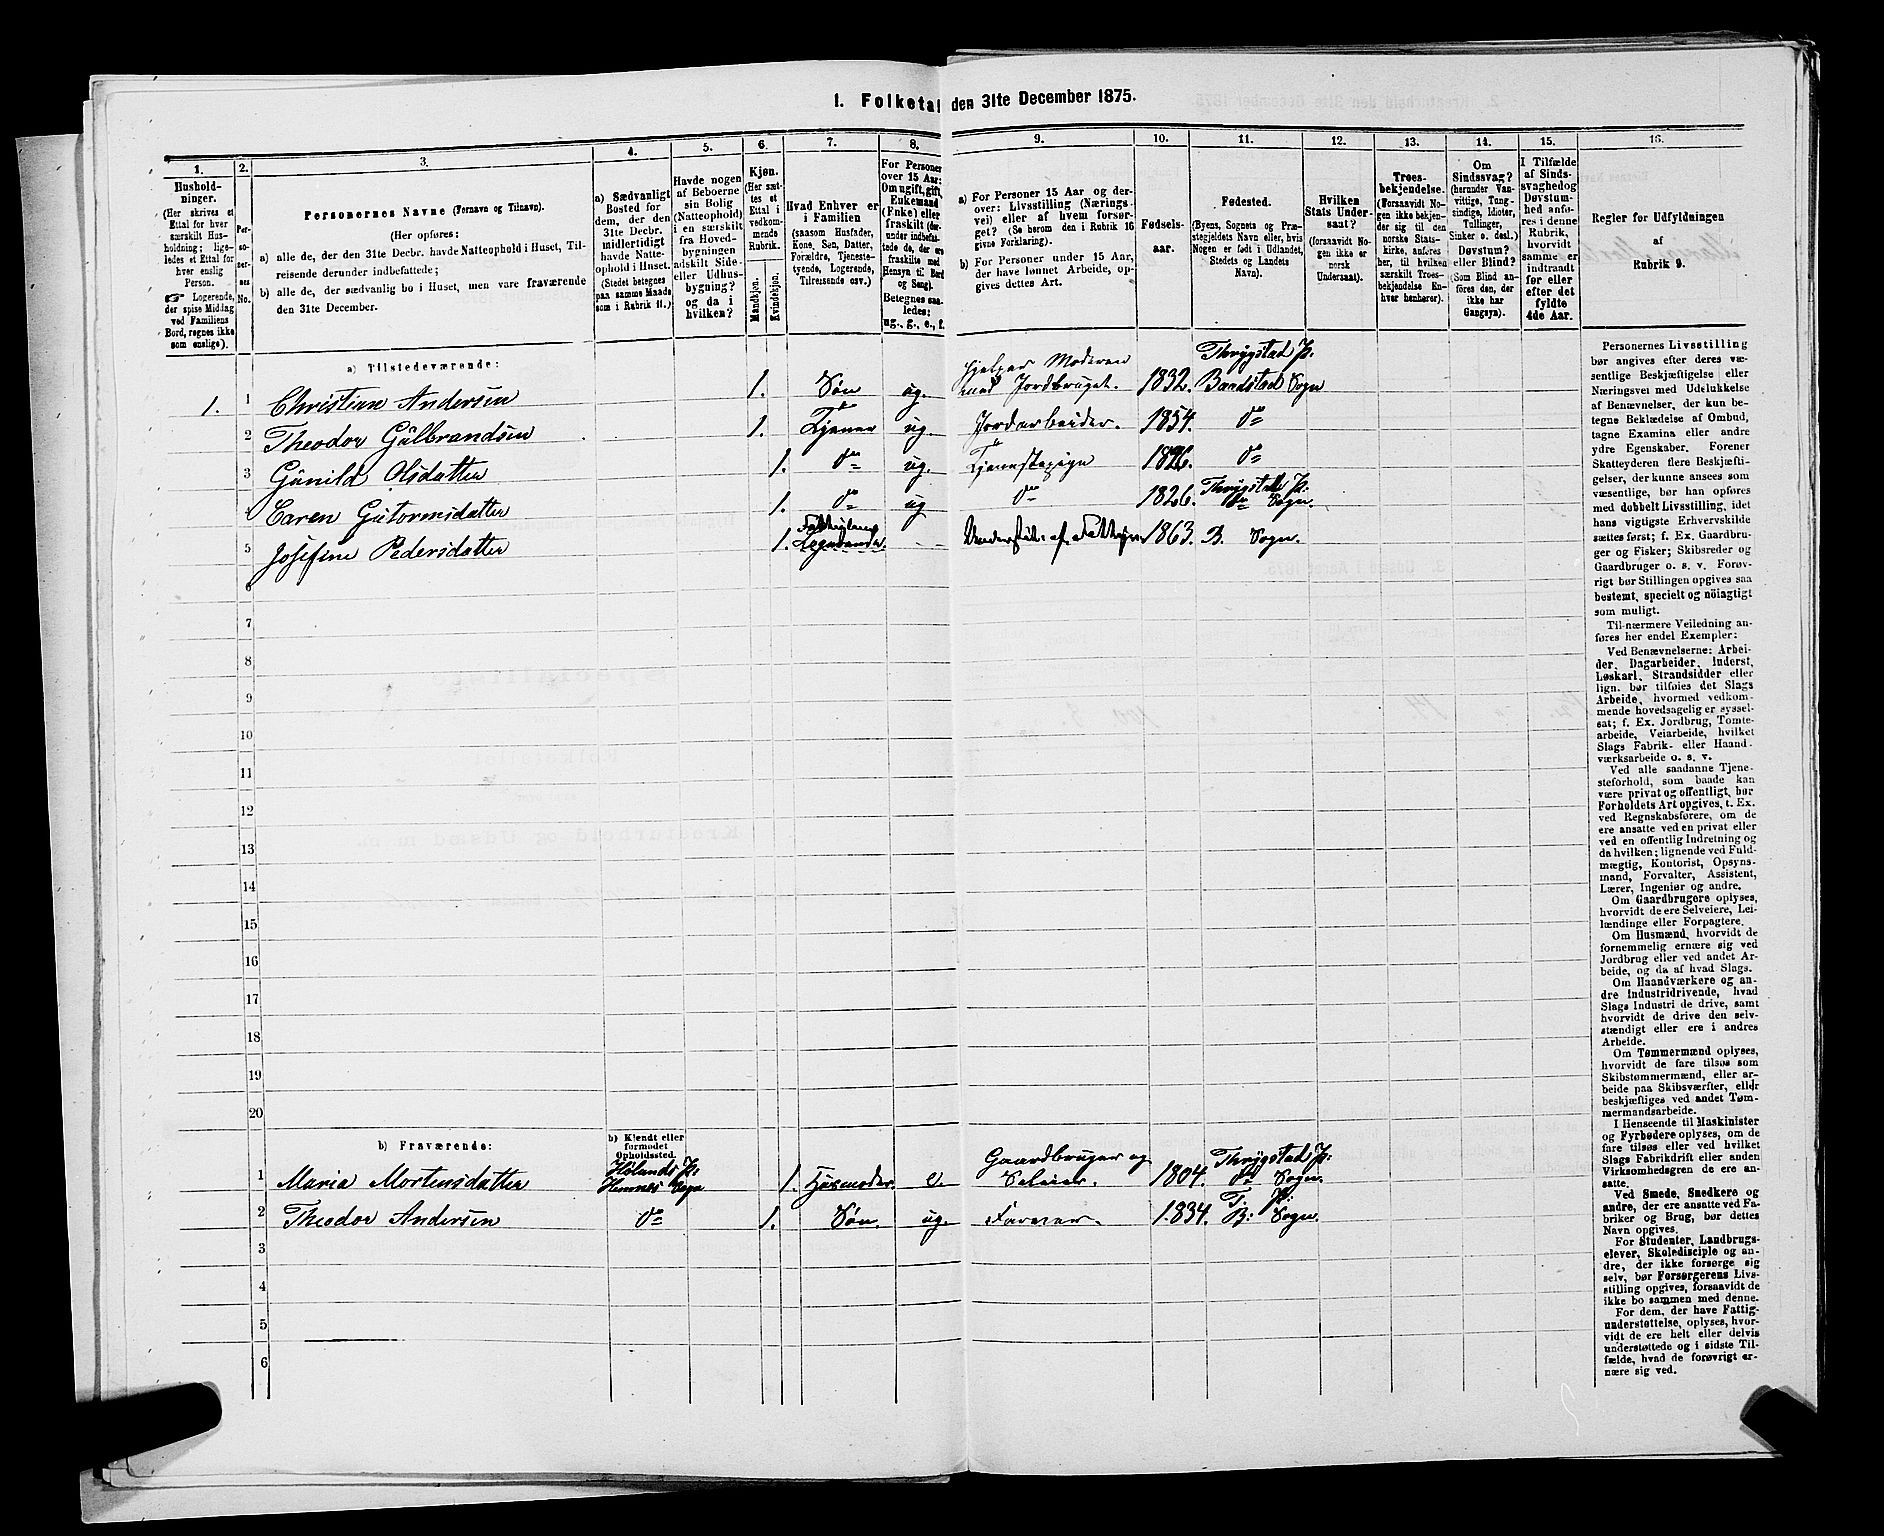 1. Folketal den 31te December 1875.
1. 2. 3. 4. 5. 6. 7. 8. 9. 10. 11. 12. 13. 14. 15. 16.
Hushold-
ninger.
(Her skrives et
Ettal for hver
særskilt Hus-
holdning; lige-
ledes et Ettal for
hver enslig
Person.
Logerende,
der spise Middag
ved Familiens
Bord, regnes ikke
som enslige).
Per-
so-
ner-
nes
No.
Personernes Navne (Fornavn og Tilnavn).
(Her opføres:
a) alle de, der den 31te Decbr. havde Natteophold i Huset, Til-
reisende derunder indbefattede;
b) alle de, der sædvanlig bo i Huset, men vare fraværende
den 31te December.
a) Sædvanligt
Bosted for
dem, der den
31te Decbr.
midlertidigt
havde Natte-
ophold i Huset.
(Stedet betegnes
paa samme Maade
som i Rubrik 11.)
Havde nogen
af Beboerne
sin Bolig
(Natteophold)
i en særskilt
fra Hoved-
bygningen
adskilt Side-
eller Udhus-
bygning?
og da i
hvilken?
Kjøn.
(Her sæt-
tes et
Ettal i
vedkom-
mende
Rubrik.
Mandkjøn.
Kvindekjøn.
Hvad Enhver er
i Familien
(saasom Husfader,
Kone, Søn, Datter,
Forældre, Tjeneste-
tyende, Logerende,
Tilreisende osv.)
For Personer
over 15 Aar:
Om ugift, gift,
Enkemand
(Enke) eller
fraskilt (der-
under indbefat-
tede de, der ere
fraskilte med
Hensyn til Bord
og Seng).
Betegnes saa-
ledes:
ug., g., e., f.
a) For Personer 15 Aar og der-
over: Livsstilling (Nærings-
vei) eller af hvem forsør-
get? (Se herom den i Rubrik 16
givne Forklaring).
b) For Personer under 15 Aar,
der have lønnet Arbeide, op-
gives dettes Art.
Fødsels-
aar.
Fødested.
(Byens, Sognets og Præ-
stegjeldets Navn eller, hvis
Nogen er født i Udlandet,
Stedets og Landets
Navn).
Hvilken
Stats Under-
saat?
(forsaavidt No-
gen ikke er
norsk
Undersaat).
Troes-
bekjendelse.
(Forsaavidt No-
gen ikke bekjen-
der sig til den
norske Stats-
kirke, anføres
her, til hvilken
særskilt Troes-
bekjendelse En-
hver henhører).
Om
Sindssvag?
(herunder Van-
vittige, Tung-
sindige, Idioter,
Tullinger,
Sinker o. desl.)
Døvstum?
eller Blind?
(Som Blind an-
føres den, der
ikke har
Gangsyn).
I Tilfælde
af Sinds-
svaghed og
Døvstum-
hed anfø-
res i denne
Rubrik,
hvorvidt
samme er
indtraadt
før eller
efter det
fyldte
4de Aar.
Regler for Udfyldningen
af
Rubrik 9.
a) Tilstedeværende:
1. 1 Christian Andersen 1. Søn ug. Hjelper Moderen
med Jordbruget. 1832. Thrygstad P:
Baadstad Sogn
2 Theodor Gulbrandsen 1. Tjener ug. Jordarbeider. 1854. do
3 Gunild Olsdatter 1. do ug. Tjenestepige 1826. do
4 Caren Gutormsdatter 1. do ug do 1826. Thrygstad P:
do Sogn.
5 Josefine Pedersdatter 1. Fattigvæs
Understøt: af Fattigv 1863. B. Sogn.
6
7
8
9
10
11
12
13
14
15
16
17
18
19
20
b) Fraværende:
b) Kjendt eller
formodet
Opholdssted.
1 Maria Mortensdatter Hølands P:
Hemnes Sogn 1. Husmoder. e. Gaardbruger og
Seleier. 1804. Thrygstad P:
do Sogn.
2 Theodor Andersen do 1. Søn. ug. Farver. 1834. T: P:
B: Sogn.
3
4
5
6
Personernes Livsstilling
bør angives efter deres væ-
sentlige Beskjæftigelse eller
Næringsvei med Udelukkelse
af Benævnelser, der kun be-
tegne Beklædelse af Ombud,
tagne Examina eller andre
ydre Egenskaber. Forener
Skatteyderen flere Beskjæfti-
gelser, der kunne ansees som
væsentlige, bør han opføres
med dobbelt Livsstilling, idet
hans vigtigste Erhvervskilde
sættes først; f. Ex. Gaardbru-
ger og Fisker; Skibsreder og
Gaardbruger o. s. v. Forøv-
rigt bør Stillingen opgives saa
bestemt, specielt og nöiagtigt
som muligt.
Til nærmere Veiledning an-
føres her endel Exempler:
Ved Benævnelserne: Arbei-
der, Dagarbeider, Inderst,
Løskarl, Strandsidder eller
lign. bør tilføies det Slags
Arbeide, hvormed vedkom-
mende hovedsagelig er syssel-
sat; f. Ex. Jordbrug, Tomte-
arbeide, Veiarbeide, hvilket
Slags Fabrik- eller Haand-
værksarbeide o. s. v.
Ved alle saadanne Tjene-
steforhold, som baade kan
være privat og offentligt, bør
Forholdets Art opgives, t. Ex.
ved Regnskabsførere, om de
ere ansatte ved en privat eller
ved en offentlig Indretning og
da hvilken; lignende ved Fuld-
mægtig, Kontorist, Opsyns-
mand, Forvalter, Assistent,
Lærer, Ingeniør og andre.
Om Gaardbrugere oplyses,
hvorvidt de ere Selveiere, Lei-
lændinge eller Forpagtere.
Om Husmænd, hvorvidt de
fornemmelig ernære sig ved
Jordbrug eller ved andet Ar-
beide, og da af hvad Slags.
Om Haandværkere og an-
dre Industridrivende, hvad
Slags Industri de drive, samt
hvorvidt de drive den selv-
stændigt eller ere i andres
Arbeide.
Om Tømmermænd oplyses,
hvorvidt de fare tilsøs som
Skibstømmermænd, eller ar-
beide paa Skibsværfter, eller
beskjæftiges ved andet Tøm-
mermandsarbeide.
I Henseende til Maskinister
og Fyrbødere oplyses, om de
fare tilsøs eller ved hvilket
Slags Fabrikdrift eller anden
Virksomhedsgren de ere an-
satte.
Ved Smede, Snedkere og
andre, der ere ansatte ved Fa-
briker og Brug, bør dettes
Navn opgives.
For Studenter, Landbrugs-
elever, Skoledisciple og an-
dre, der ikke forsørge sig
selv, bør Forsørgerens Livs-
stilling opgives, forsaavidt de
ikke bo sammen med denne.
For dem, der have Fattig-
understøttelse, oplyses, hvor-
vidt de ere helt eller delvis
understøttede og i sidste Til-
fælde, hvad de forøvrigt er-
nære sig ved.